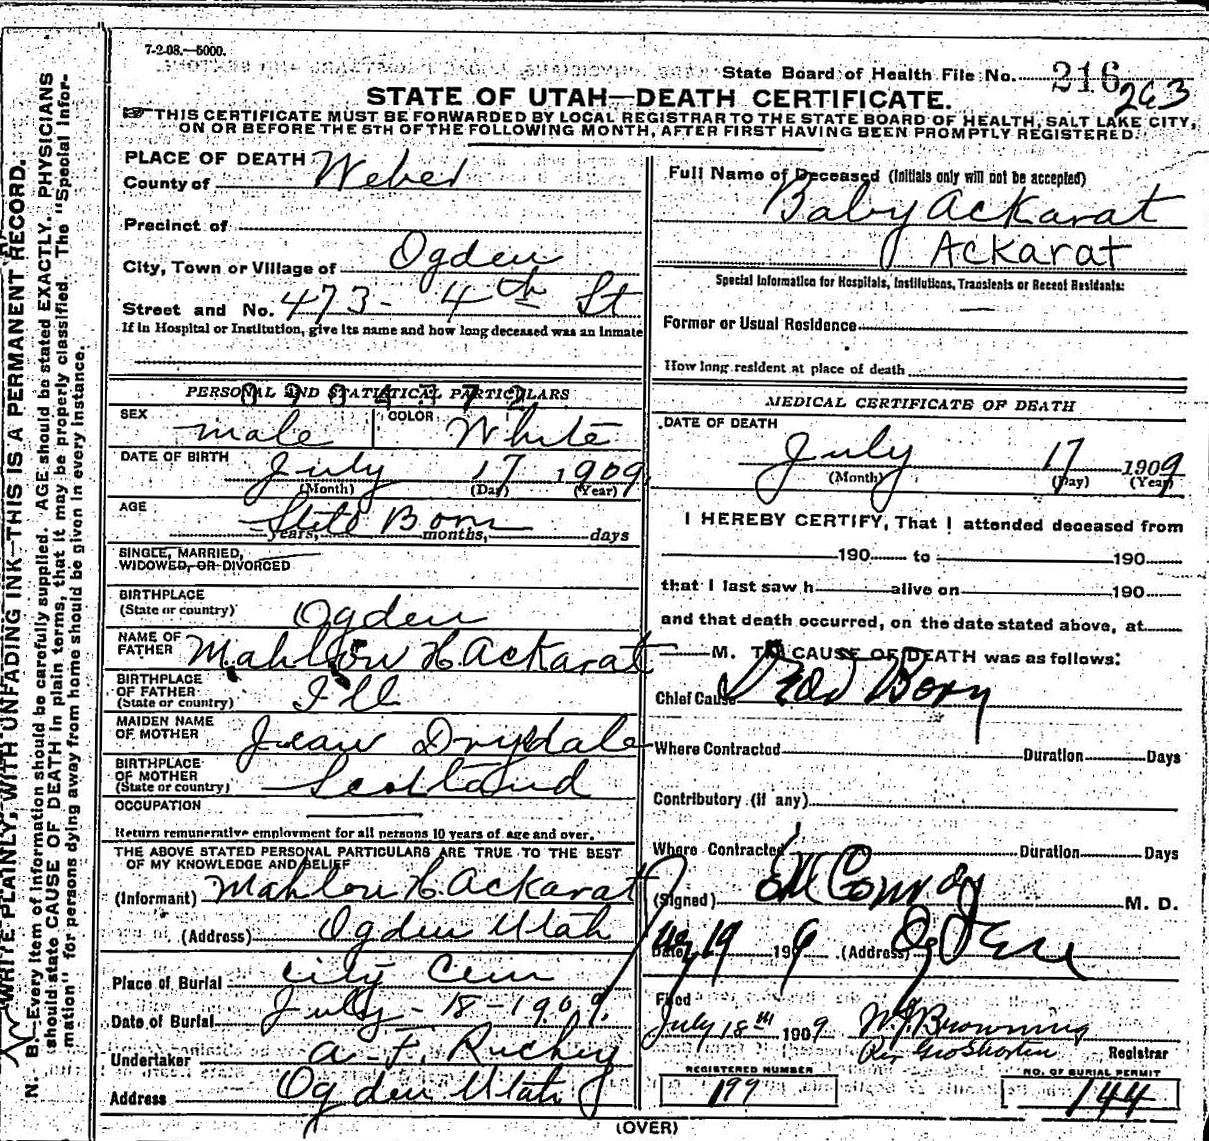 7-2-08.—5000.
State Board of Health File No. 216
263
STATE OF UTAH—DEATH CERTIFICATE.
THIS CERTIFICATE MUST BE FORWARDED BY LOCAL REGISTRAR TO THE STATE BOARD OF HEALTH, SALT LAKE CITY,
ON OR BEFORE THE 5TH OF THE FOLLOWING MONTH, AFTER FIRST HAVING BEEN PROMPTLY REGISTERED.
WRITE PLAINLY, WITH UNFADING INK—THIS IS A PERMANENT RECORD.
N. B.—Every item of information should be carefully supplied. AGE should be stated EXACTLY. PHYSICIANS
should state CAUSE OF DEATH in plain terms, that it may be properly classified. The "Special Infor-
mation" for persons dying away from home should be given in every instance.
PLACE OF DEATH
County of Weber
Precinct of
City, Town or Village of Ogden
Street and No. 473- 4th St
If in Hospital or Institution, give its name and how long deceased was an inmate
PERSONAL AND STATISTICAL PARTICULARS
SEX male COLOR White
DATE OF BIRTH July 17, 1909
(Month) (Day) (Year)
AGE Still Born
years, months, days
SINGLE, MARRIED,
WIDOWED, OR DIVORCED
BIRTHPLACE
(State or country) Ogden
NAME OF
FATHER Mahlon H Ackarat
BIRTHPLACE
OF FATHER
(State or country) Ill
MAIDEN NAME
OF MOTHER Jean Drysdale
BIRTHPLACE
OF MOTHER
(State or country) Scotland
OCCUPATION
Return remunerative employment for all persons 10 years of age and over.
THE ABOVE STATED PERSONAL PARTICULARS ARE TRUE TO THE BEST
OF MY KNOWLEDGE AND BELIEF
(Informant) Mahlon H Ackarat
(Address) Ogden Utah
Place of Burial City Cem
Date of Burial July - 18 - 1909.
Undertaker A. F. Richey
Address Ogden Utah
Full Name of Deceased (Initials only will not be accepted)
Baby Ackarat
Ackarat
Special Information for Hospitals, Institutions, Transients or Recent Residents:
Former or Usual Residence
How long resident at place of death
MEDICAL CERTIFICATE OF DEATH
DATE OF DEATH
July 17 1909
(Month) (Day) (Year)
I HEREBY CERTIFY, That I attended deceased from
190 to 190
that I last saw h alive on 190
and that death occurred, on the date stated above, at
M. The CAUSE OF DEATH was as follows:
Chief Cause Dead Born
Where Contracted Duration Days
Contributory (if any)
Where Contracted Duration Days
(Signed) M. D.
Date 19 1909 (Address) Ogden
Filed
July 18th 1909 W.J. Browning
Per Geo Shorten Registrar
REGISTERED NUMBER
199
NO. OF BURIAL PERMIT
144
(OVER)